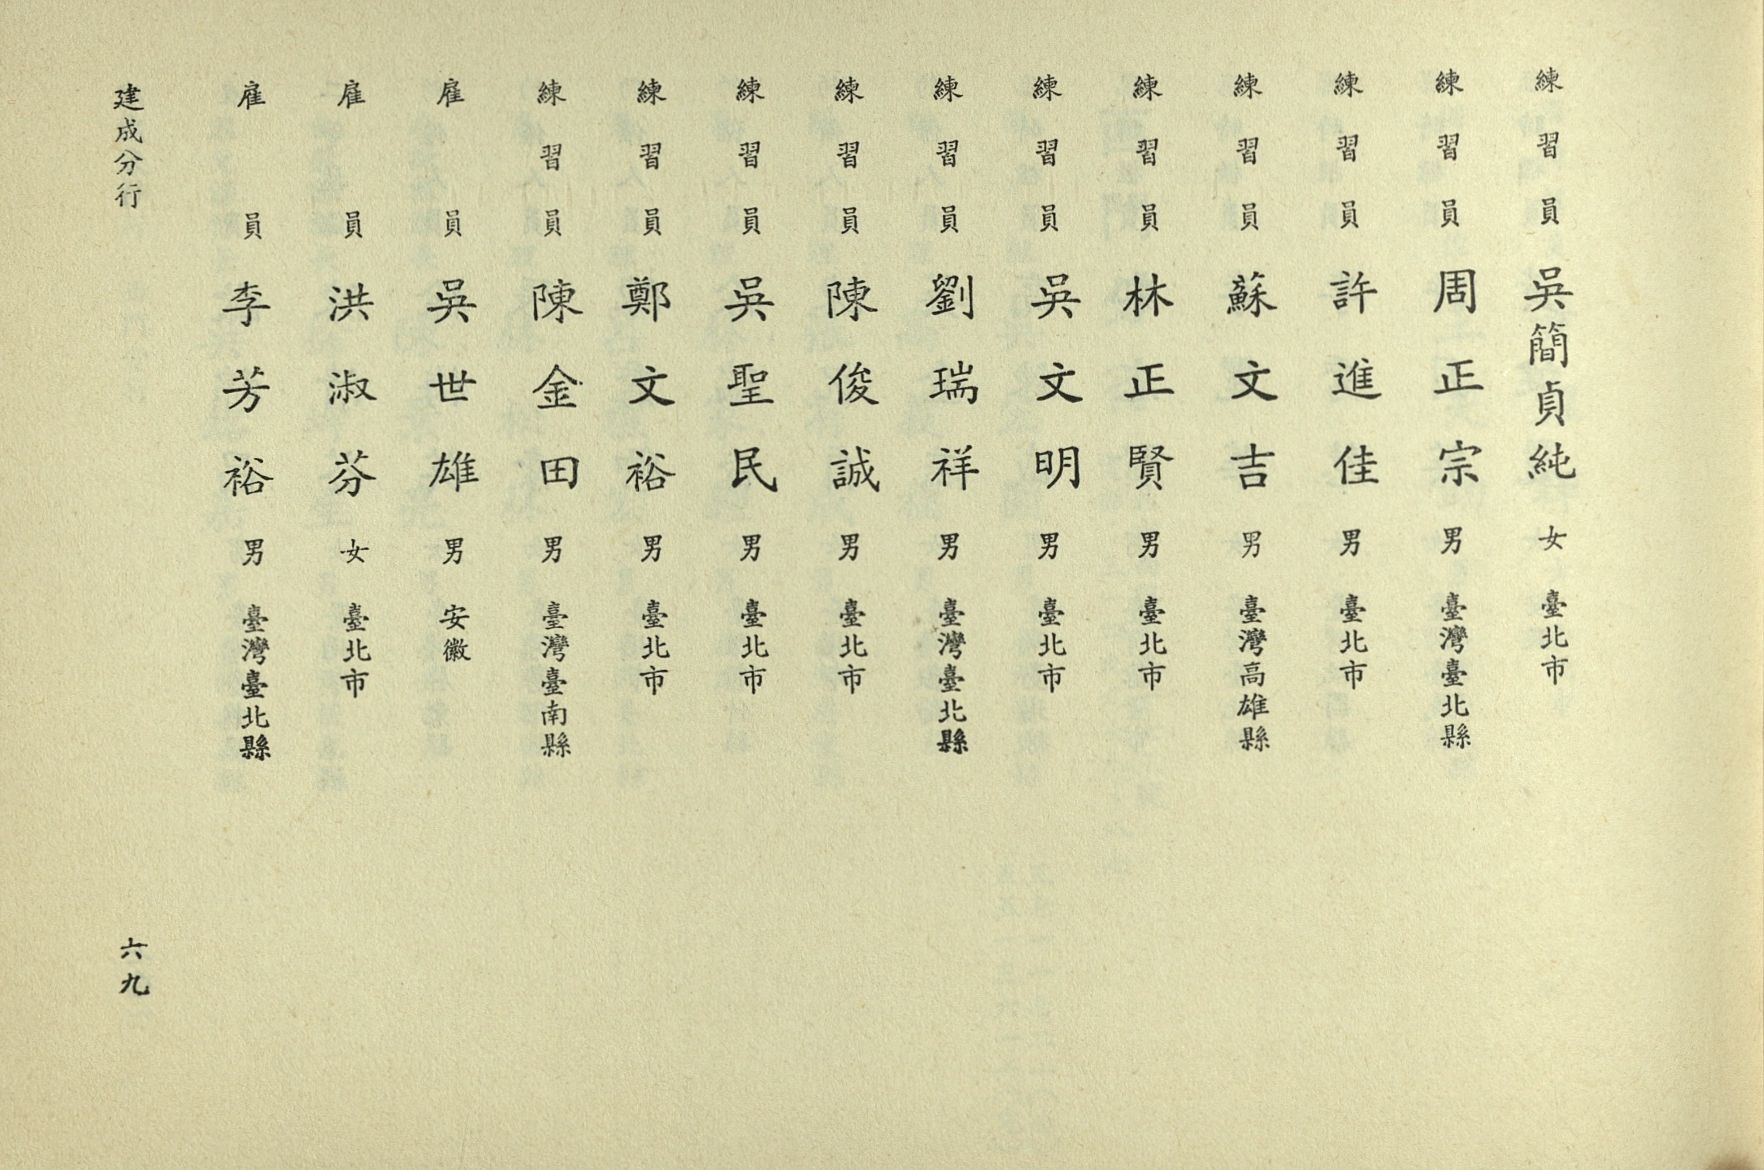 練習員 吳簡貞純 女 臺北市
練習員 周正宗 男 臺灣臺北縣
練習員 許進佳 男 臺北市
練習員 蘇文吉 男 臺灣高雄縣
練習員 林正賢 男 臺北市
練習員 吳文明 男 臺北市
練習員 劉瑞祥 男 臺灣臺北縣
練習員 陳俊誠 男 臺北市
練習員 吳聖民 男 臺北市
練習員 鄭文裕 男 臺北市
練習員 陳金田 男 臺灣臺南縣
雇員 吳世雄 男 安徽
雇員 洪淑芬 女 臺北市
雇員 李芳裕 男 臺灣臺北縣
建成分行
六九